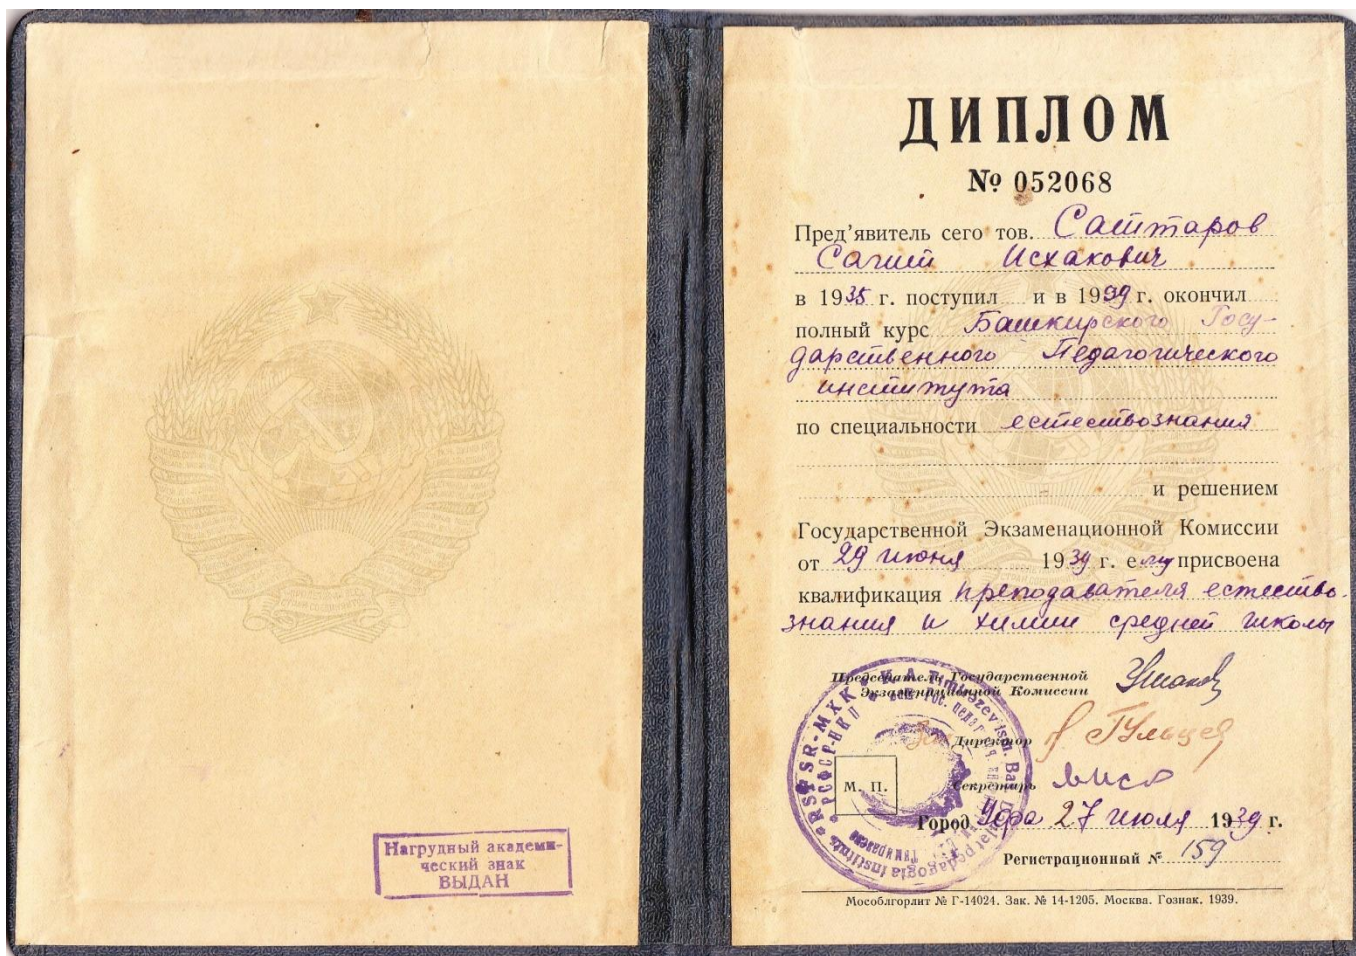 Нагрудный академи-
ческий знак
ВЫДАН
ДИПЛОМ
№ 052068
Пред'явитель сего тов. Саттаров
Сагит Исхакович
в 1935 г. поступил и в 1939 г. окончил
полный курс Башкирского Госу-
дарственного Педагогического
института
по специальности естествознания
и решением
Государственной Экзаменационной Комиссии
от 29 июня 1939 г. ему присвоена
квалификация преподавателя естество-
знания и химии средней школы
Председатель Государственной
Экзаменационной Комиссии
Директор
Секретарь
М. П.
Город Уфа 27 июля 1939 г.
Регистрационный № 159
Мособлгорлит № Г-14024. Зак. № 14-1205. Москва. Гознак. 1939.
RSFSR-MXK K. A. Timirazev ism. Baş. Dəylət pedagogia instituty
РСФСР-НКП